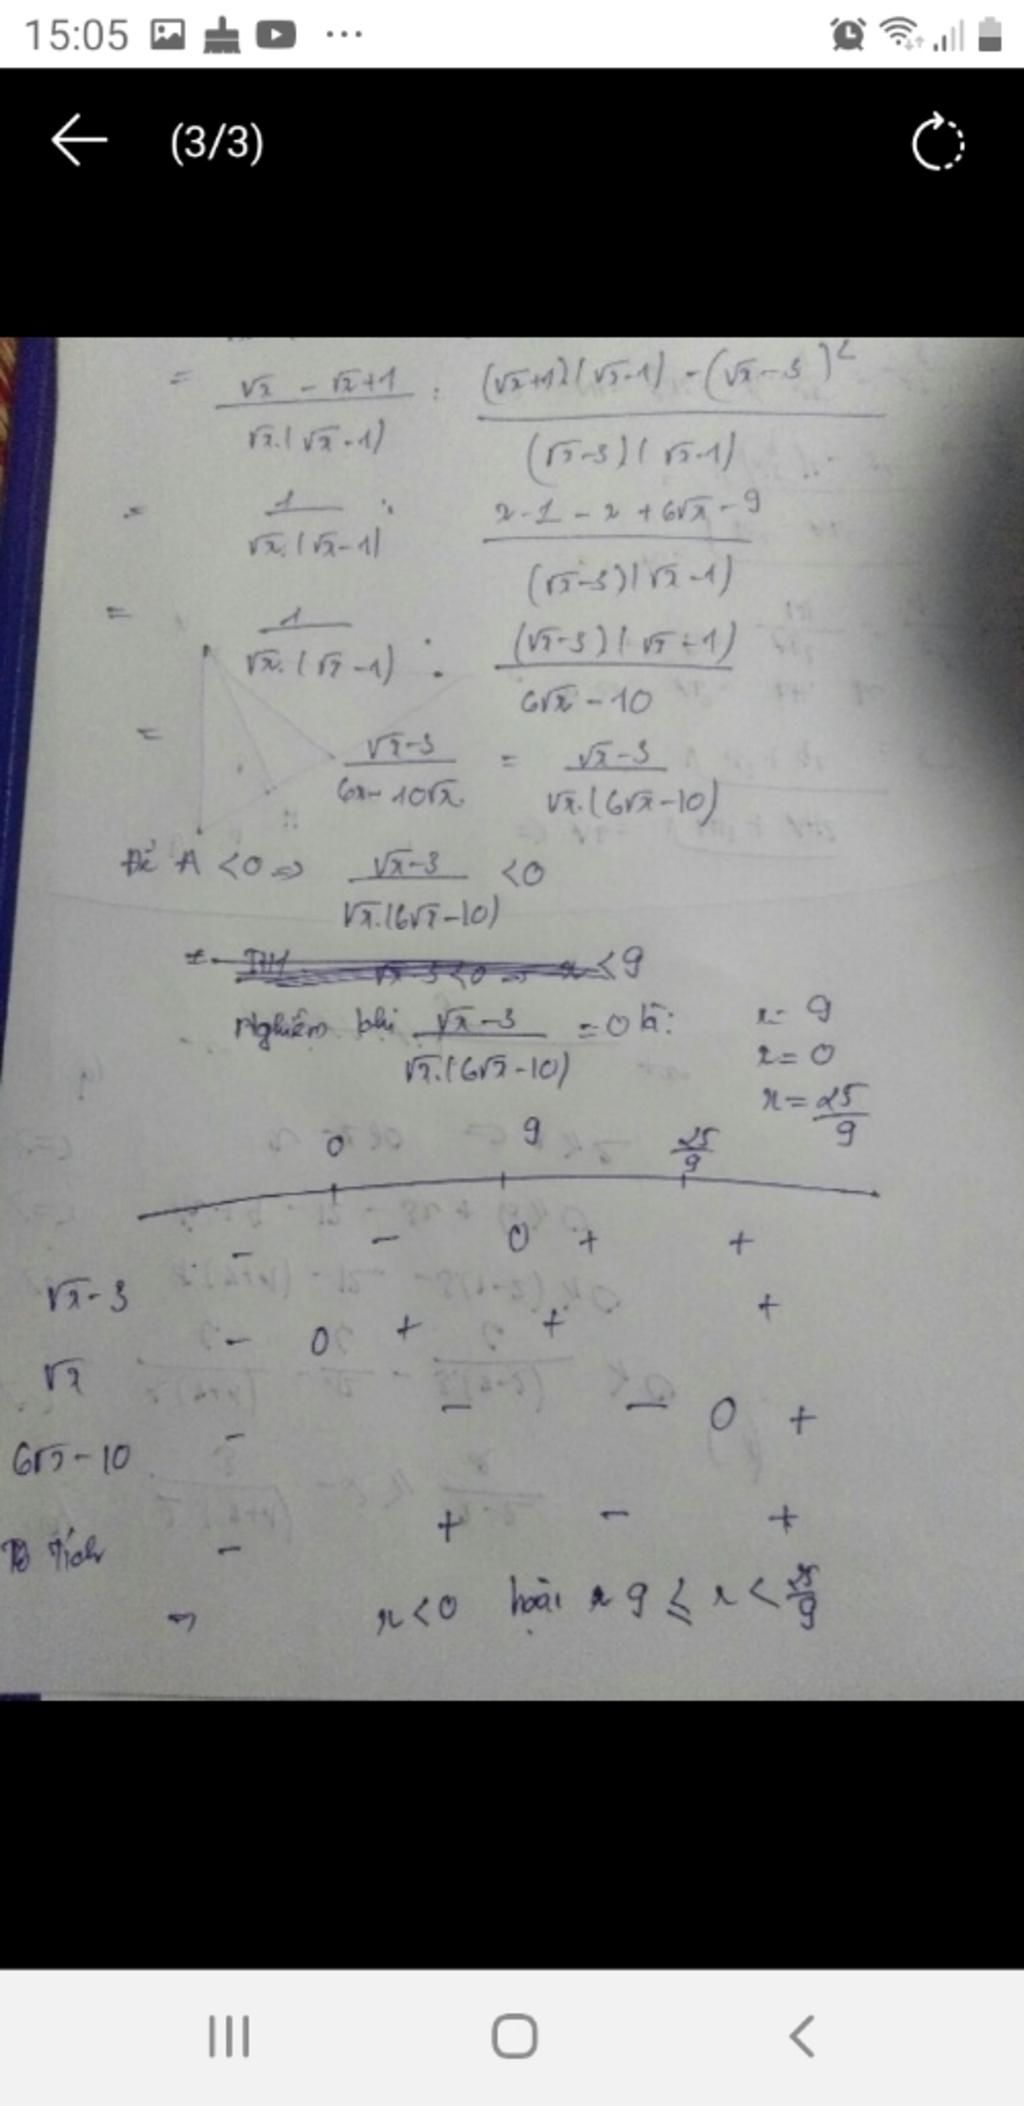 15:05
(3/3)
= √x - √x+1 / √x.(√x-1) : (√x+1)(√x-1) - (√x-3)² / (√x-3)(√x-1)
= 1 / √x.(√x-1) : x-1-x+6√x-9 / (√x-3)(√x-1)
= 1 / √x.(√x-1) . (√x-3)(√x-1) / 6√x-10
= √x-3 / 6x-10√x = √x-3 / √x.(6√x-10)
Để A <0 => √x-3 / √x.(6√x-10) <0
<9
Nghiệm khi √x-3 / √x.(6√x-10) =0 là: x= 9
x=0
x= 25/9
0 9 25/9
√x-3 - - 0 + +
√x - 0 + + +
6√x-10 - - - 0 +
Tích - + - +
=> x<0 hoặc 9 ≤ x < 25/9